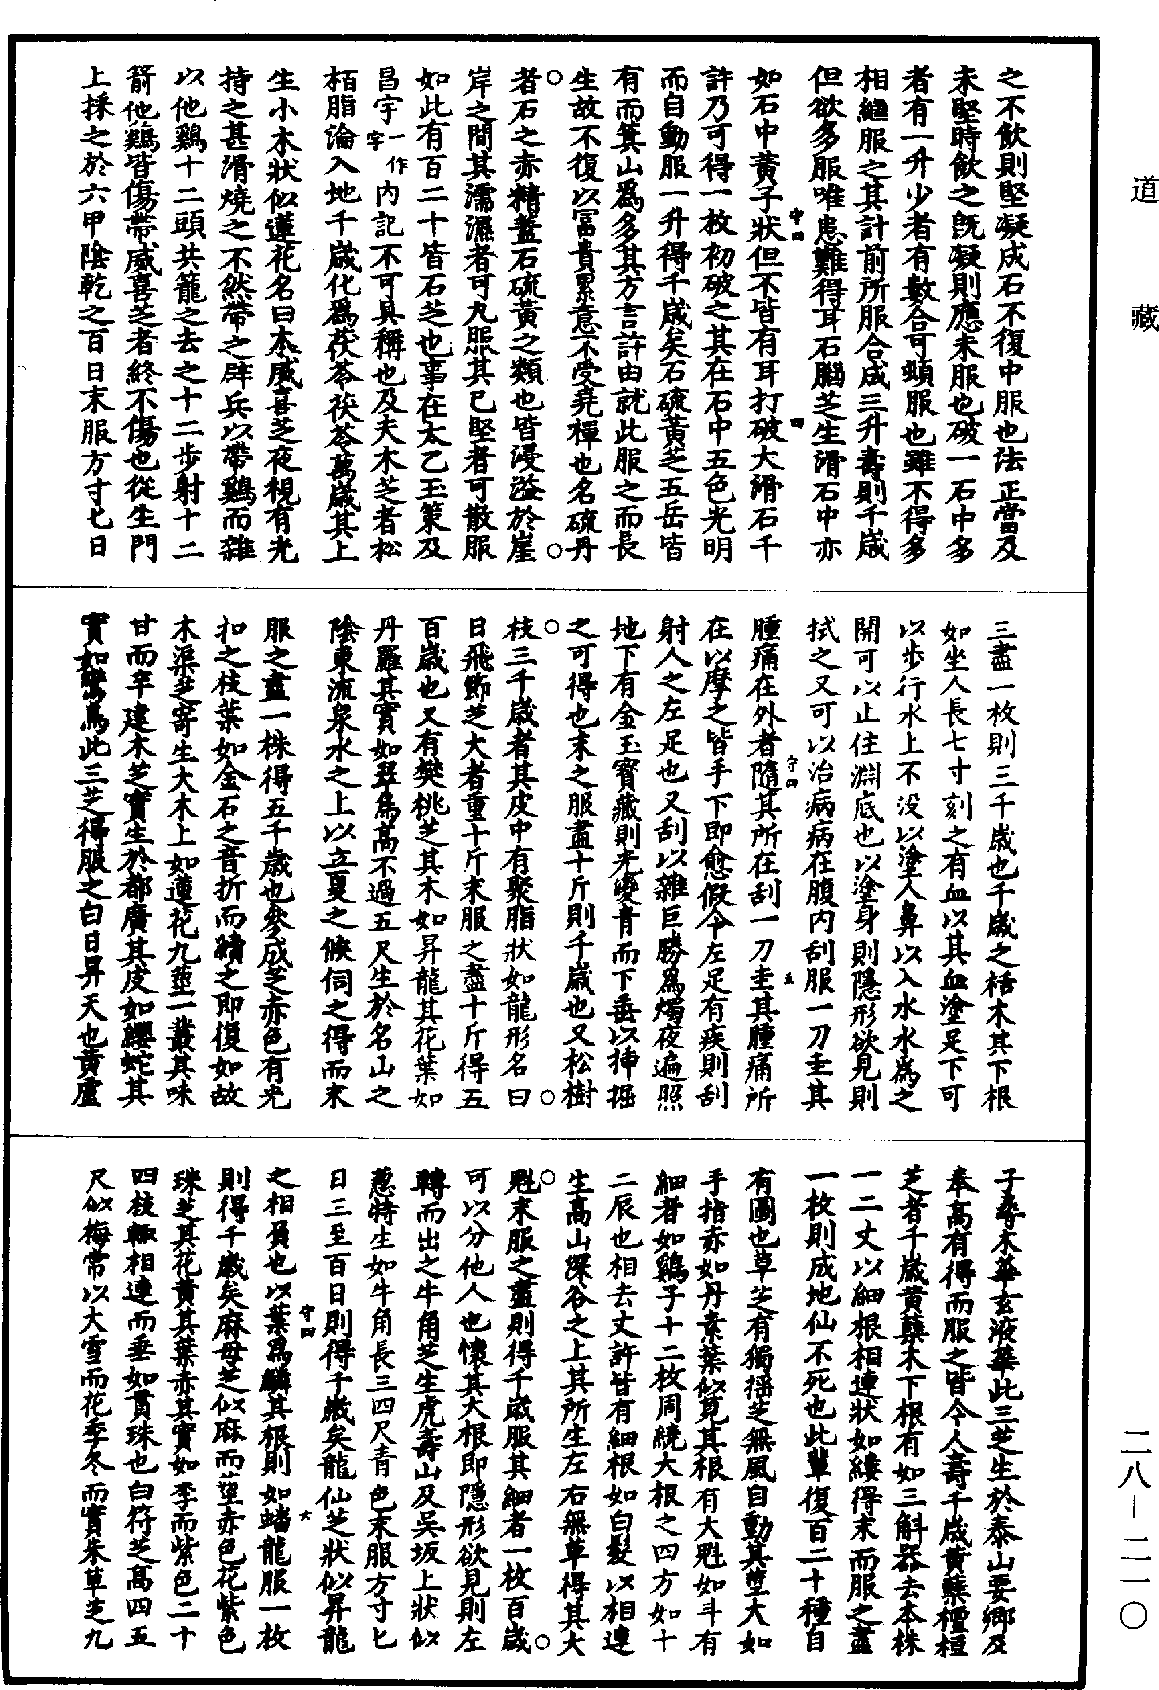 道藏
二八—二一〇
之不飲則堅凝成石不復中服也法正當及
未堅時飲之旣凝則應末服也破一石中多
者有一升少者有數合可頓服也雖不得多
相繼服之其計前所服合成三升壽則千歲
但欲多服唯患難得耳石腦芝生滑石中亦
如石中黃子狀但不皆有耳打破大滑石千
許乃可得一枚初破之其在石中五色光明
而自動服一升得千歲矣石硫黃芝五岳皆
有而箕山爲多其方言許由就此服之而長
生故不復以富貴累意不受堯禪也名硫丹
者石之赤精蓋石硫黃之類也皆浸溢於崖
岸之間其濡濕者可丸服其已堅者可散服
如此有百二十皆石芝也事在太乙玉策及
昌宇一作字內記不可具稱也及夫木芝者松
栢脂淪入地千歲化爲茯苓茯苓萬歲其上
生小木狀似蓮花名曰木威喜芝夜視有光
持之甚滑燒之不然帶之辟兵以帶鷄而雜
以他鷄十二頭共籠之去之十二步射十二
箭他鷄皆傷帶威喜芝者終不傷也從生門
上採之於六甲陰乾之百日末服方寸匕日
三盡一枚則三千歲也千歲之栝木其下根
如坐人長七寸刻之有血以其血塗足下可
以步行水上不没以塗人鼻以入水水爲之
開可以止住淵底也以塗身則隱形欲見則
拭之又可以治病病在腹內刮服一刀圭其
腫痛在外者隨其所在刮一刀圭其腫痛所
在以摩之皆手下即愈假令左足有疾則刮
射人之左足也又刮以雜巨勝爲燭夜遍照
地下有金玉寶藏則光變青而下垂以挿掘
之可得也末之服盡十斤則千歲也又松樹
枝三千歲者其皮中有聚脂狀如龍形名曰
日飛節芝大者重十斤末服之盡十斤得五
百歲也又有樊桃芝其木如昇龍其花葉如
丹羅其實如翠鳥高不過五尺生於名山之
陰東流泉水之上以立夏之候伺之得而末
服之盡一株得五千歲也參成芝赤色有光
扣之枝葉如金石之音折而續之即復如故
木渠芝寄生大木上如蓮花九莖一叢其味
甘而辛建木芝實生於都廣其皮如纓蛇其
實如鸞鳥此三芝得服之白日昇天也黃盧
子尋木華玄液華此三芝生於泰山要鄉及
奉高有得而服之皆令人壽千歲黃蘗檀桓
芝者千歲黃蘗木下根有如三斛器去本株
一二丈以細根相連狀如縷得末而服之盡
一枚則成地仙不死也此輩復百二十種自
有圖也草芝有獨搖芝無風自動其莖大如
手指赤如丹素葉似莧其根有大魁如斗有
細者如鷄子十二枚周繞大根之四方如十
二辰也相去丈許皆有細根如白髮以相連
生高山深谷之上其所生左右無草得其大
魁末服之盡則得千歲服其細者一枚百歲
可以分他人也懷其大根即隱形欲見則左
轉而出之牛角芝生虎壽山及吳坂上狀似
葱特生如牛角長三四尺青色末服方寸匕
日三至百日則得千歲矣龍仙芝狀似昇龍
之相負也以葉爲鱗其根則如蟠龍服一枚
則得千歲矣麻母芝似麻而莖赤色花紫色
珠芝其花黃其葉赤其實如李而紫色二十
四枝輒相連而垂如貫珠也白符芝高四五
尺似梅常以大雪而花季冬而實朱草芝九